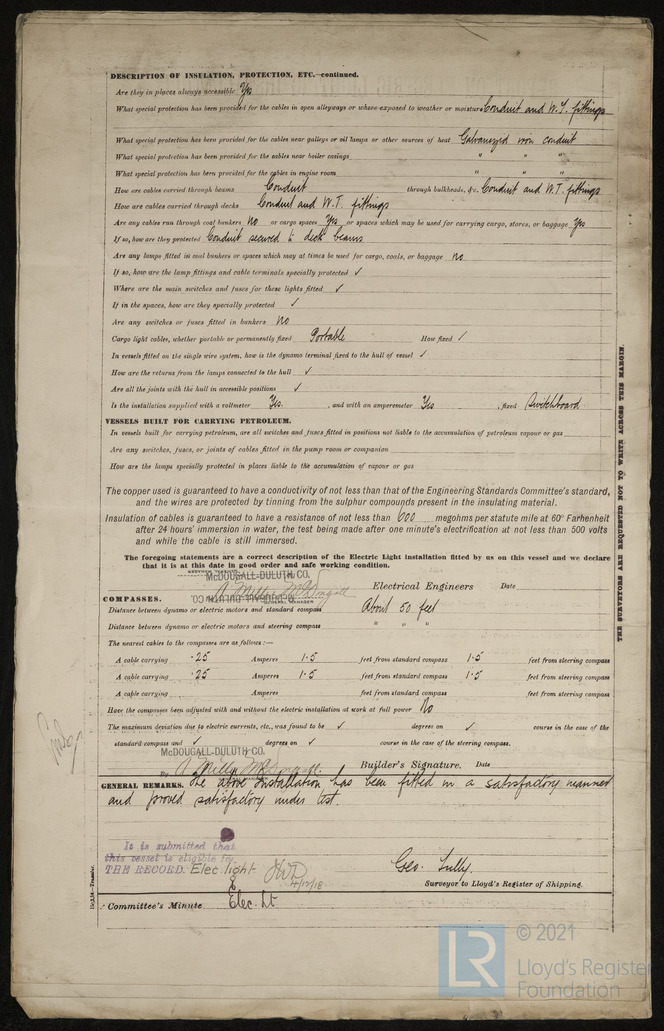 DESCRIPTION OF INSULATION, PROTECTION, ETC.—continued.
Are they in places always accessible Yes
What special protection has been provided for the cables in open alleyways or where exposed to weather or moisture Conduit and W.T. fittings
What special protection has been provided for the cables near galleys or oil lamps or other sources of heat Galvanized iron conduit
What special protection has been provided for the cables near boiler casings " " "
What special protection has been provided for the cables in engine room " " "
How are cables carried through beams Conduit through bulkheads, &c. Conduit and W.T. fittings
How are cables carried through decks Conduit and W.T. fittings
Are any cables run through coal bunkers No or cargo spaces Yes or spaces which may be used for carrying cargo, stores, or baggage Yes
If so, how are they protected Conduit secured to deck beams
Are any lamps fitted in coal bunkers or spaces which may at times be used for cargo, coals, or baggage no
If so, how are the lamp fittings and cable terminals specially protected ✓
Where are the main switches and fuses for these lights fitted ✓
If in the spaces, how are they specially protected ✓
Are any switches or fuses fitted in bunkers No
Cargo light cables, whether portable or permanently fixed Portable How fixed ✓
In vessels fitted on the single wire system, how is the dynamo terminal fixed to the hull of vessel ✓
How are the returns from the lamps connected to the hull ✓
Are all the joints with the hull in accessible positions ✓
Is the installation supplied with a voltmeter Yes. , and with an amperemeter Yes , fixed Switchboard
VESSELS BUILT FOR CARRYING PETROLEUM.
In vessels built for carrying petroleum, are all switches and fuses fitted in positions not liable to the accumulation of petroleum vapour or gas
Are any switches, fuses, or joints of cables fitted in the pump room or companion
How are the lamps specially protected in places liable to the accumulation of vapour or gas
The copper used is guaranteed to have a conductivity of not less than that of the Engineering Standards Committee's standard,
and the wires are protected by tinning from the sulphur compounds present in the insulating material.
Insulation of cables is guaranteed to have a resistance of not less than 600 megohms per statute mile at 60° Farhenheit
after 24 hours' immersion in water, the test being made after one minute's electrification at not less than 500 volts
and while the cable is still immersed.
The foregoing statements are a correct description of the Electric Light installation fitted by us on this vessel and we declare
that it is at this date in good order and safe working condition.
McDOUGALL-DULUTH CO.
A. Miller McDougall Electrical Engineers Date
COMPASSES.
Distance between dynamo or electric motors and standard compass About 50 feet
Distance between dynamo or electric motors and steering compass " " "
The nearest cables to the compasses are as follows:—
A cable carrying .25 Amperes 1.5 feet from standard compass 1.5 feet from steering compass
A cable carrying .25 Amperes 1.5 feet from standard compass 1.5 feet from steering compass
A cable carrying Amperes feet from standard compass feet from steering compass
Have the compasses been adjusted with and without the electric installation at work at full power No
The maximum deviation due to electric currents, etc., was found to be ✓ degrees on ✓ course in the case of the
standard compass and ✓ degrees on ✓ course in the case of the steering compass.
McDOUGALL-DULUTH CO.
By A. Miller McDougall. Builder's Signature. Date
GENERAL REMARKS. The above installation has been fitted in a satisfactory manner
and proved satisfactory under test.
It is submitted that
this vessel is eligible for
THE RECORD. Elec. light
4/12/18
Geo. Tully.
Surveyor to Lloyd's Register of Shipping.
Committee's Minute Elec. Lt
THE SURVEYORS ARE REQUESTED NOT TO WRITE ACROSS THIS MARGIN.
© 2021
LR
Lloyd's Register
Foundation